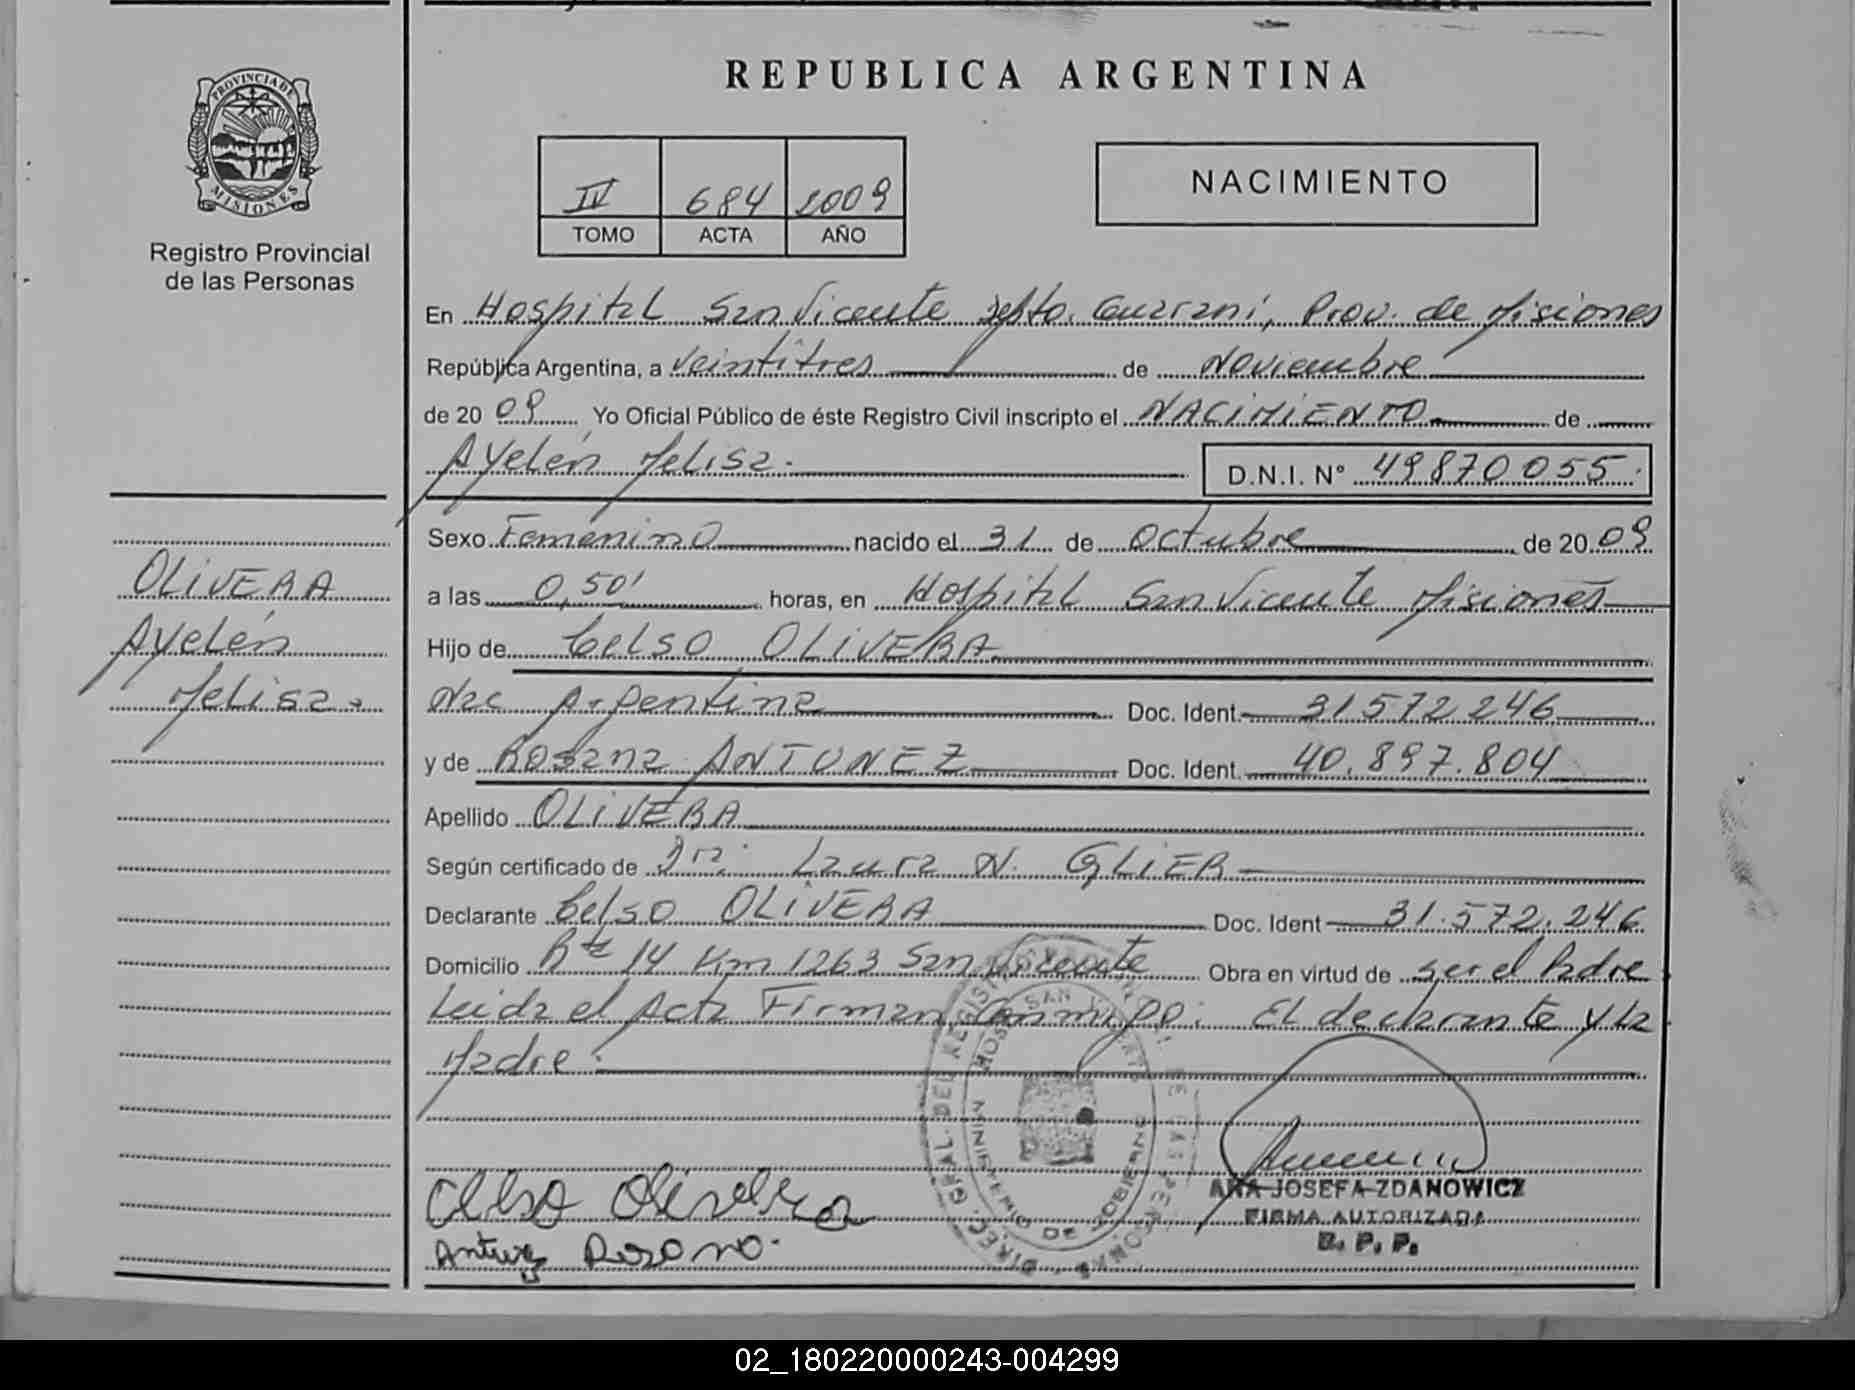 REPUBLICA ARGENTINA
PROVINCIA DE MISIONES
Registro Provincial
de las Personas
IV 684 2009
TOMO ACTA AÑO
NACIMIENTO
En Hospital San Vicente Depto. Guaraní, Prov. de Misiones
República Argentina, a veintitres de Noviembre
de 20 09 Yo Oficial Público de éste Registro Civil inscripto el NACIMIENTO de
Ayelén Melisa. D.N.I. N° 49870055.
Sexo Femenino nacido el 31 de Octubre de 20 09
a las 0,50' horas, en Hospital San Vicente Misiones
Hijo de Celso OLIVERA
Nac Argentina Doc. Ident. 31572246
y de Rosana ANTUNEZ Doc. Ident. 40.897.804
Apellido OLIVERA
Según certificado de Dra. Laura N. GLIER
Declarante Celso OLIVERA Doc. Ident 31.572.246
Domicilio Rta 14 Km 1263 San Vicente Obra en virtud de ser el Padre
Leida el Acta Firman Conmigo: El declarante y la
Madre.
OLIVERA
Ayelén
Melisa.
Celso Olivera
Antunez Rosana.
DIREC. GRAL. DEL REGISTRO DE LAS PERSONAS
HOSP. SAN VICENTE
MINISTERIO DE GOBIERNO
ANA JOSEFA ZDANOWICZ
FIRMA AUTORIZADA
R. P. P.
02_180220000243-004299